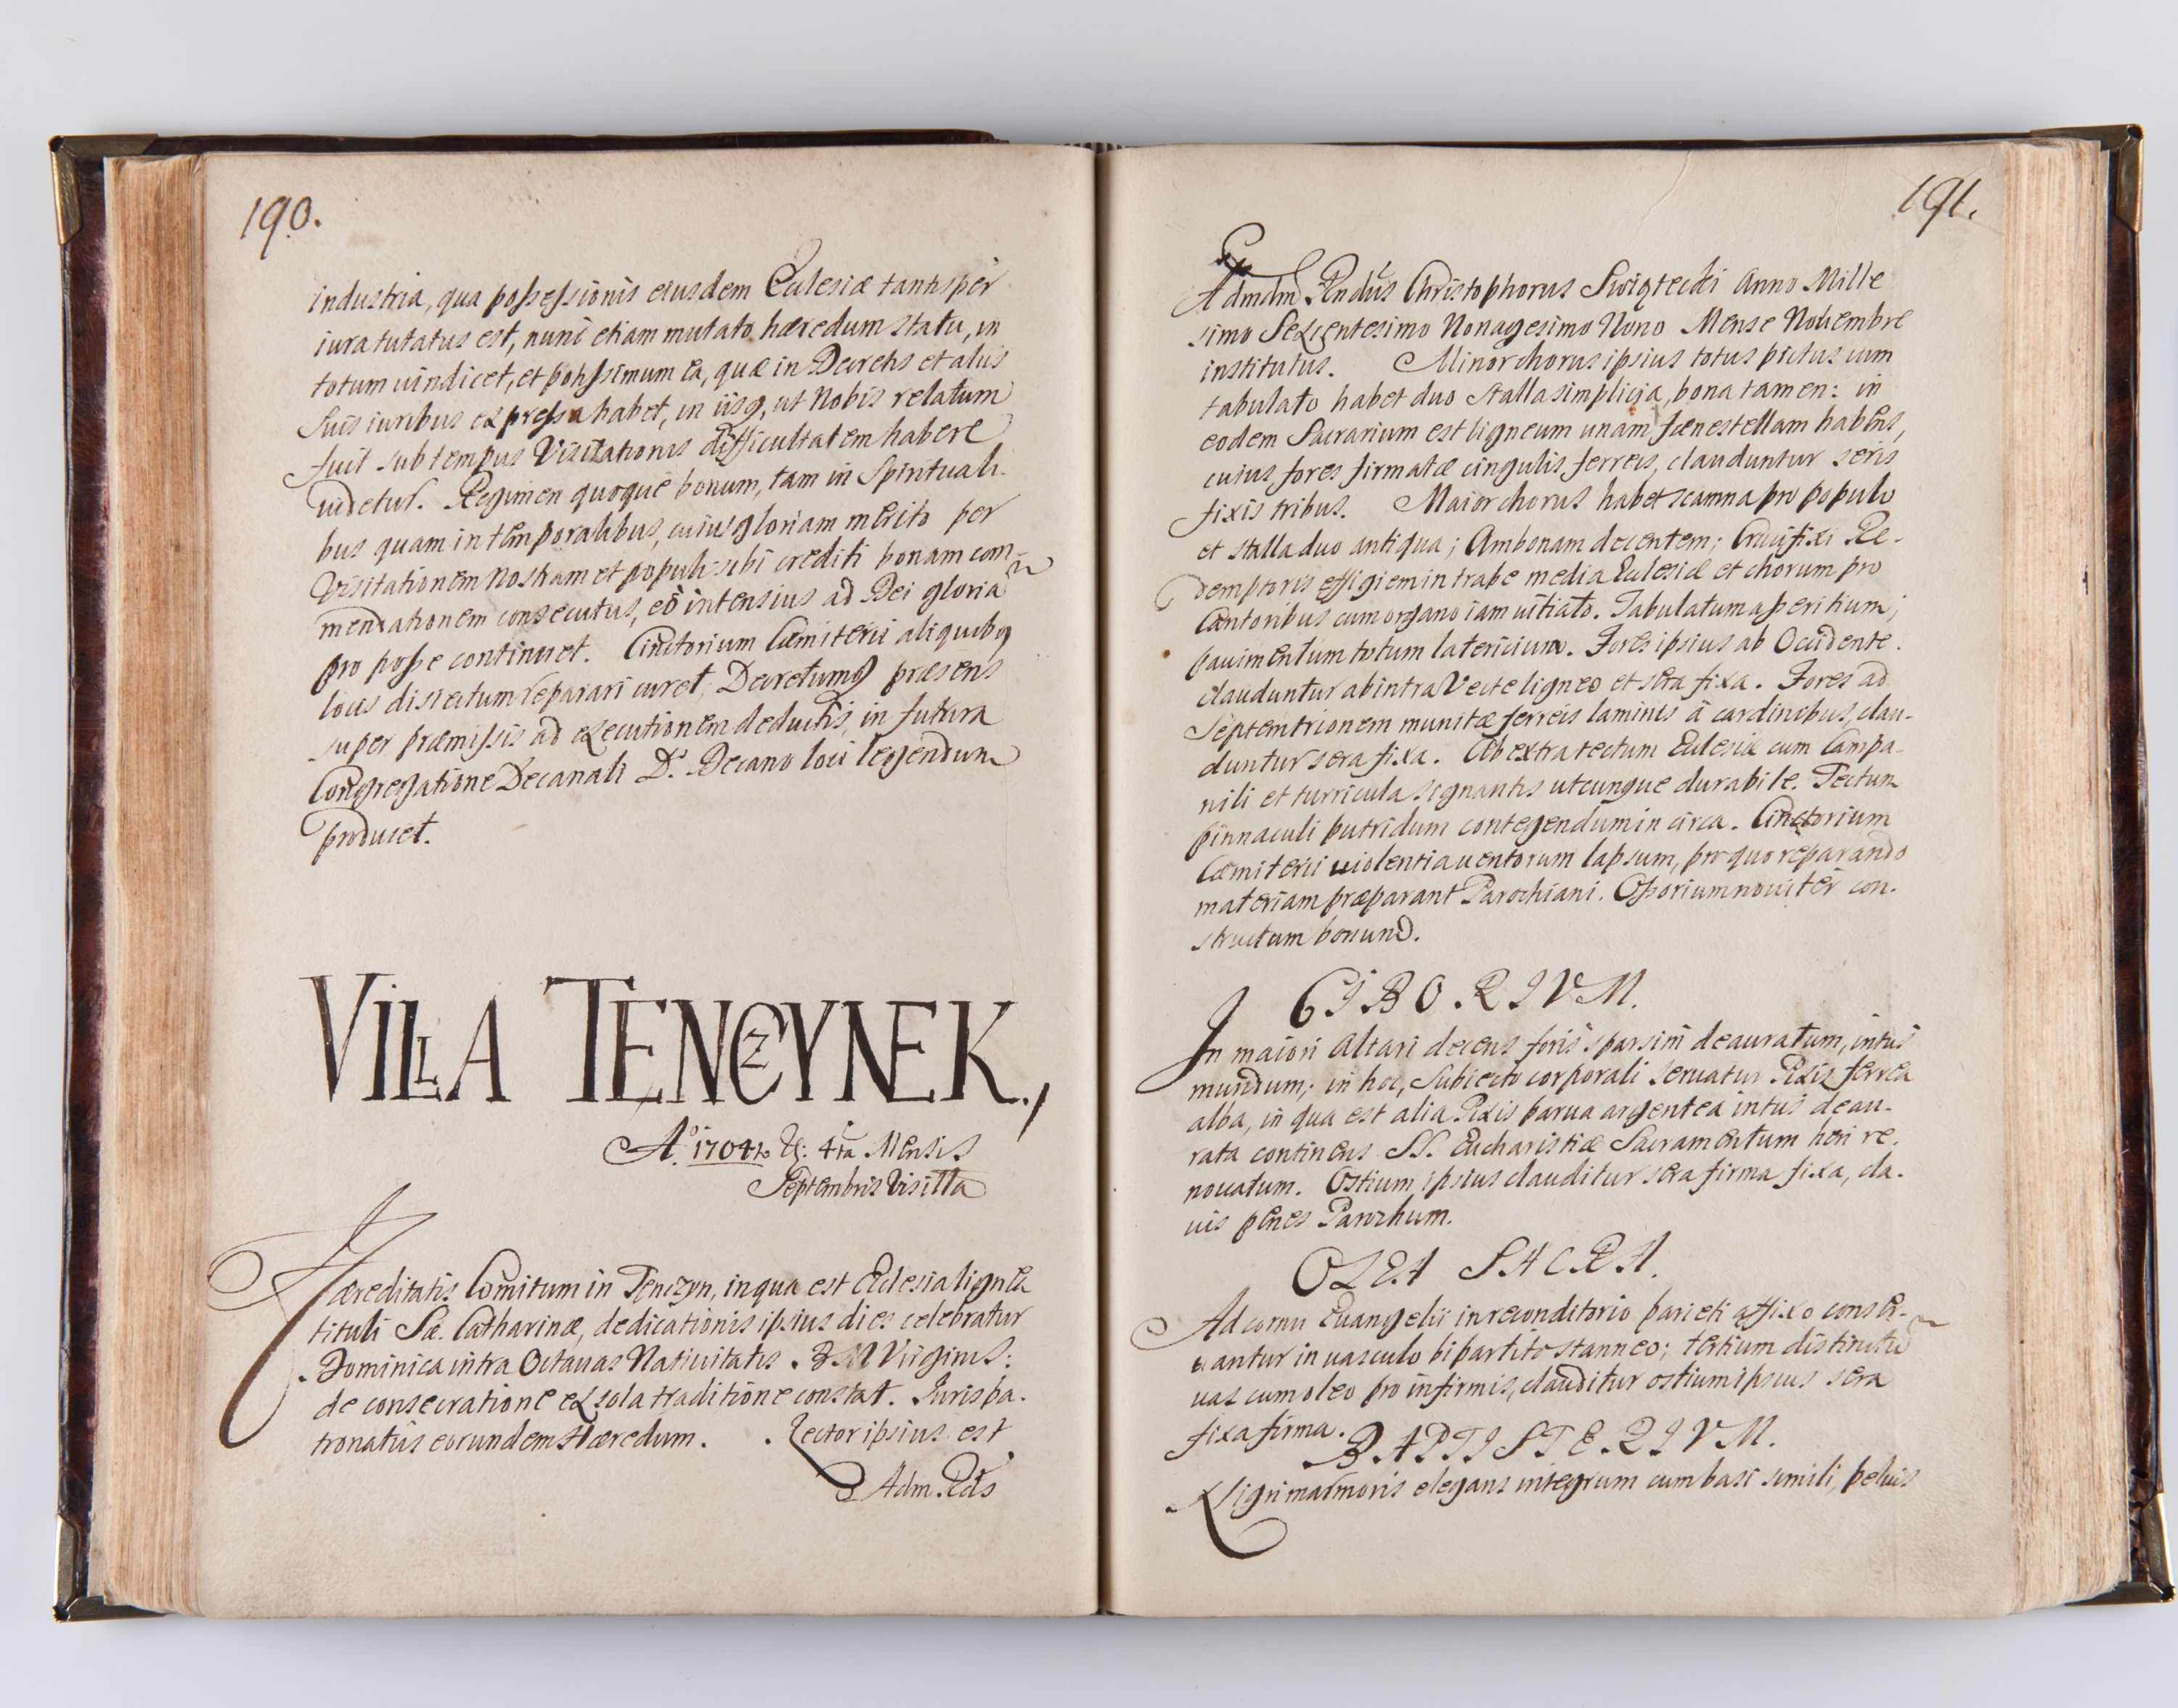 190.
industria, qua possessionis eiusdem Ecclesiæ tantisper
iura tutatus est, nunc etiam mutato hæredum statu, in
totum vindicet, et potissimum ea, quæ in Decretis et aliis
suis iuribus expressa habet, in iisq, ut Nobis relatum
fuit sub tempus Visitationis difficultatem habere
videtur. Regimen quoque bonum, tam in Spirituali-
bus quam in temporalibus, cuius gloriam merito per
Visitationem Nostram et populi sibi crediti bonam com-
mendationem consecutus, eò intensius ad Dei gloria
pro posse continuet. Cinctorium Cæmiterii aliquibq
locis disiectum reparari curet, Decretumq præsens
super præmissis ad executionem deductis, in futura
Congregatione Decanali D. Decano loci legendum
producet.
VILLA TENCZYNEK,
Aº 1704to 4ta Mensis
Septembris Visitta
Hæreditatis Comitum in Tenczyn, in qua est Ecclesia lignea
tituli Sæ. Catharinæ, dedicationis ipsius dies celebratur
Dominica intra Octavas Nativitatis B M Virginis:
de consecratione ex sola traditione constat. Iurispa-
tronatûs eorundem Hæredum. Rector ipsius est
Adm. Rds
191.
Admdm Rndus Christophorus Anno Mille
simo Sexcentesimo Nonagesimo Nono Mense Novembre
institutus. Minor chorus ipsius totus pictus cum
tabulato habet duo stalla simplicia, bona tamen: in
eodem Sacrarium est ligneum unam fænestellam habens,
cuius fores firmatæ cingulis ferreis, clauduntur seris
fixis tribus. Maior chorus habet scamna pro populo
et stalla duo antiqua; Ambonam decentem; Crucifixi Re-
demptoris effigiem in trabe media Ecclesiæ et chorum pro
Cantoribus cum organo iam vitiato. Tabulatum asseritium;
pavimentum totum latericium. Fores ipsius ab Occidente
clauduntur ab intra Vecte ligneo et sera fixa. Fores ad
Septemtrionem munitæ ferreis laminis à cardinibus, clau-
duntur sera fixa. Ab extra tectum Ecclesiæ cum Campa-
nili et turricula signantis utcunque durabile. Tectum
pinnaculi putridum contegendum in circa. Cinctorium
Cæmiterii violentia ventorum lapsum, pro quo reparando
materiam præparant Parochiani. Ossorium noviter con-
structum bonum.
CIBORIVM.
In maiori Altari decens foris sparsim deauratum, intus
mundum; in hoc, subiecto corporali servatur Pixis ferrea
alba, in qua est alia Pixis parva argentea intus deau-
rata continens SS. Eucharistiæ Sacramentum heri re-
novatum. Ostium ipsius clauditur sera firma fixa, cla-
vis penes Parochum.
OLEA SACRA.
Ad cornu Evangelii in reconditorio parieti affixo conser-
vantur in vasculo bipartito stanneo; tertium distinctu
vas cum oleo pro infirmis, clauditur ostium ipsius sera
fixa firma.
BAPTISTERIVM.
Nigri marmoris elegans integrum cum basi simili, pelvis